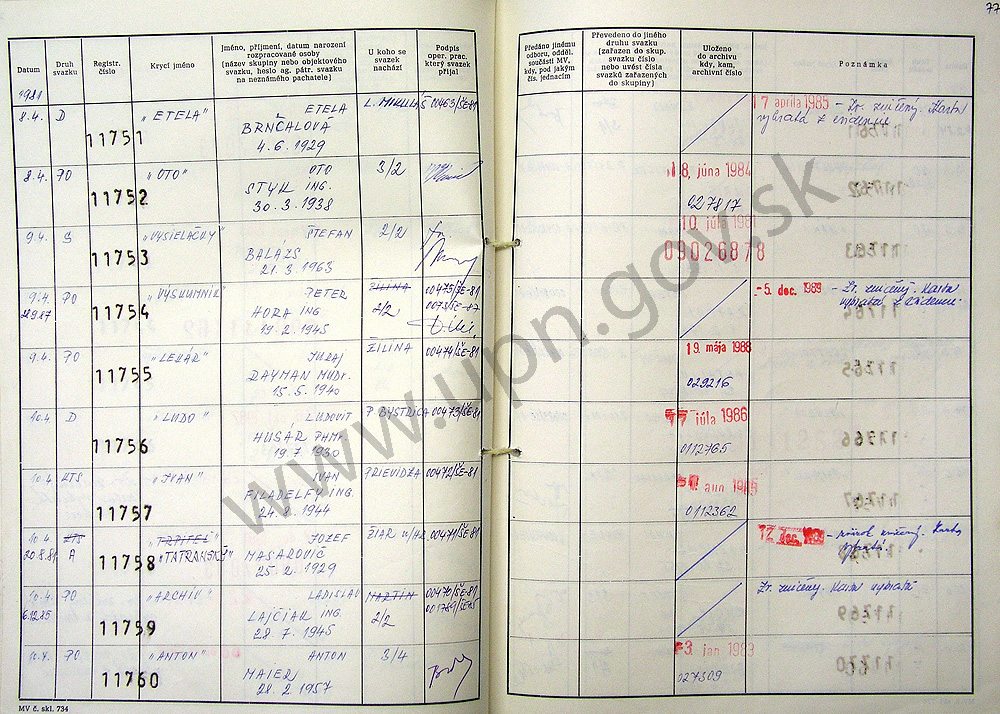 77
Datum
Druh svazku
Registr. číslo
Krycí jméno
Jméno, příjmení, datum narození
rozpracované osoby
(název skupiny nebo objektového
svazku, heslo ag. pátr. svazku
na neznámého pachatele)
U koho se
svazek
nachází
Podpis
oper. prac.
který svazek
přijal
Předáno jinému
odboru, odděl.
součásti MV,
kdy, pod jakým
čís. jednacím
Převedeno do jiného
druhu svazku
(zařazen do skup.
svazku číslo
nebo uvést čísla
svazků zařazených
do skupiny)
Uloženo
do archivu
kdy, kam,
archivní číslo
Poznámka
1981
8.4. D 11751 "ETELA" ETELA L. MIKULÁŠ 00463/ŠE-81
BRNČALOVÁ
4.6.1929
17 apríla 1985 - Zv. zničený. Karta
vybratá z evidencie
8.4. PO 11752 "OTO" OTO 3/2
STYK ING.
30.3.1938
8. júna 1984
027817
9.4. S 11753 "VYSIELAČKY" ŠTEFAN 2/2
BALÁŽS
21.3.1963
10 júla
09026878
9.4. PO 11754 "VÝSKUMNÍK" PETER ŽILINA 00475/ŠE-81
HORA ING 2/2
19.2.1945
-5. dec. 1989 - Zv. zničený. Karta
vybratá z evidencie
9.4. PO 11755 "LEKÁR" JURAJ ŽILINA 00474/ŠE-81
DAYMAN MUDr.
15.5.1940
19. mája 1988
029216
10.4 D 11756 "LUDO" ĽUDOVIT P. BYSTRICA 00473/ŠE-81
HUSÁR
19.7.1930
júla 1986
0112765
10.4 KTS 11757 "IVAN" IVAN PRIEVIDZA 00472/ŠE-81
FILADELFY ING.
24.2.1944
0112362
10.4 KTS 11758 JOZEF ŽIAR n/Hr 00471/ŠE-81
A "TATRANSKÝ"
MASAROVIČ
25.2.1929
12 dec.
10.4. PO 11759 "ARCHÍV" LADISLAV MARTIN 00470/ŠE-81
6.12.85 LAJČIAK ING. 2/2
28.7.1945
Zv. zničený. Karta vybratá
10.4. PO 11760 "ANTON" ANTON 3/4
MAIER
28.2.1957
3 jan 1983
027309
MV č. skl. 734
www.upn.gov.sk